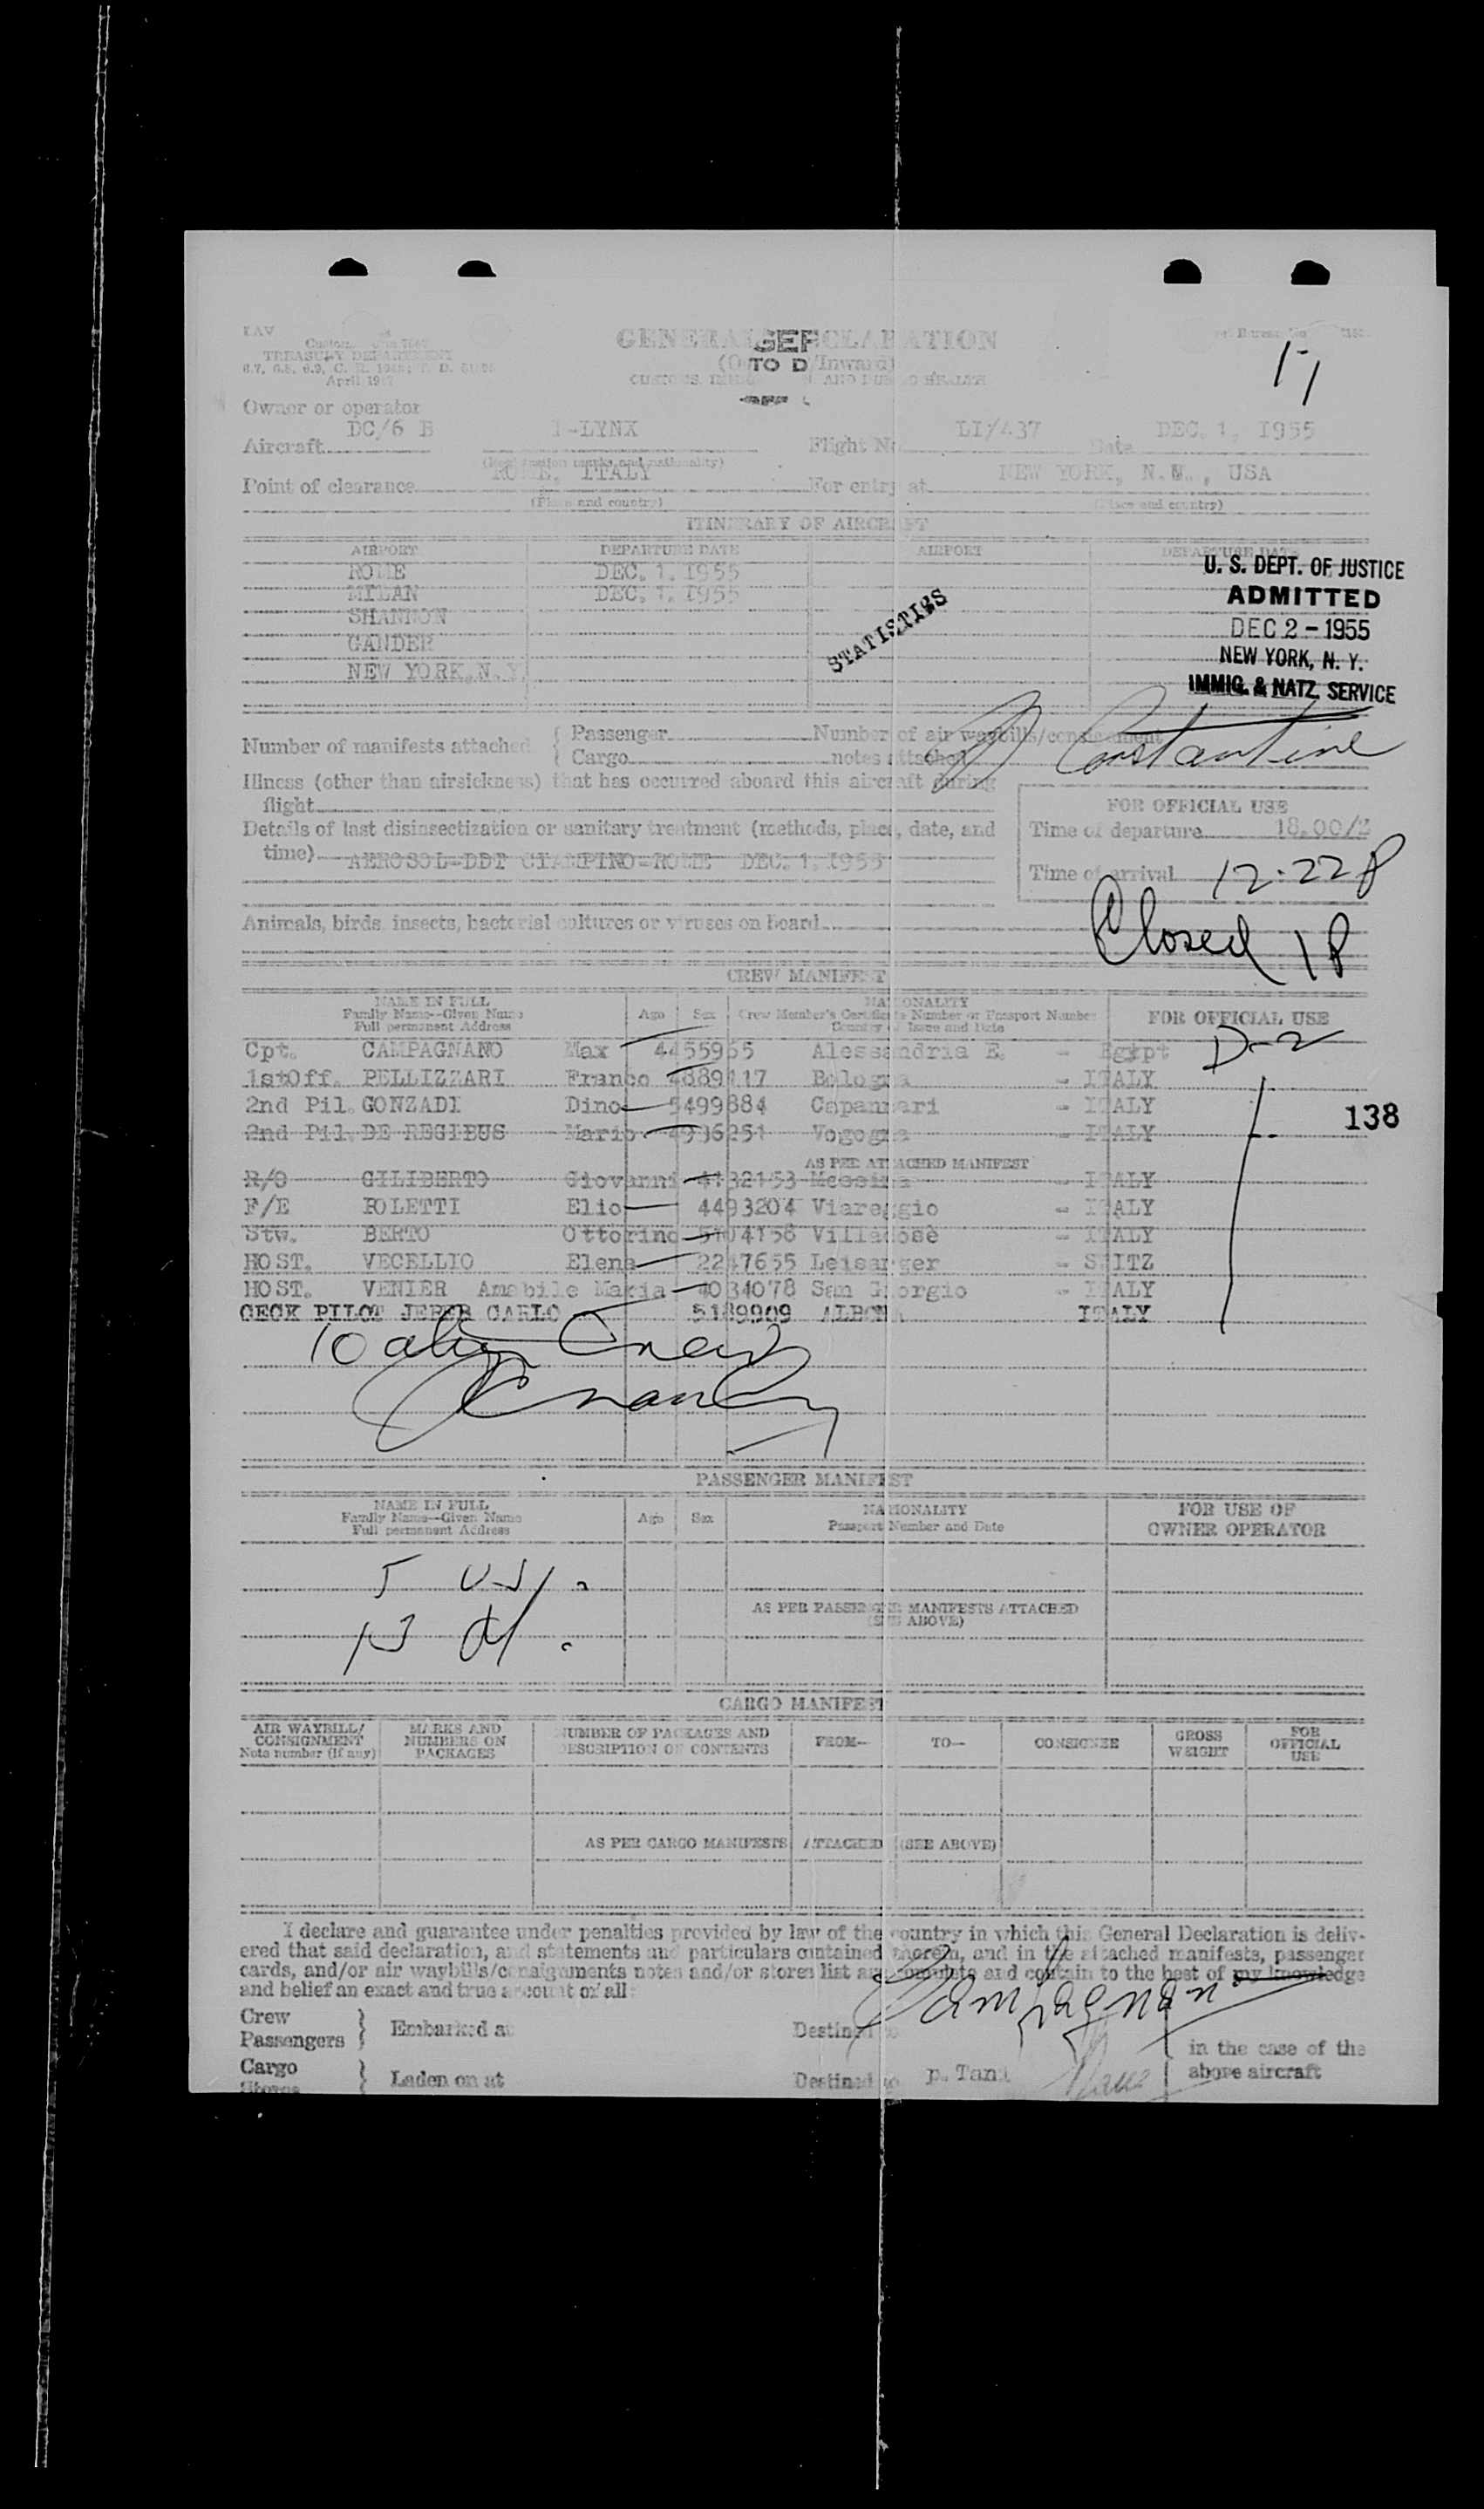 GENERAL DECLARATION
TREASURY DEPARTMENT
April 1947
TO D
17
Owner or operator
Aircraft DC/6 B I-LYNX Flight No. LI/437 Date DEC. 1, 1955
(Registration marks and nationality)
Point of clearance ROME, ITALY For entry at NEW YORK, N.Y., USA
(Place and country) (Place and country)
ITINERARY OF AIRCRAFT
AIRPORT DEPARTURE DATE AIRPORT DEPARTURE DATE
ROME DEC. 1. 1955
MILAN DEC. 1. 1955
SHANNON
GANDER
NEW YORK, N.Y.
STATISTICS
U. S. DEPT. OF JUSTICE
ADMITTED
DEC 2 - 1955
NEW YORK, N. Y.
IMMIG. & NATZ. SERVICE
Constantine
Number of manifests attached { Passenger Number of air waybills/consignment
Cargo notes attached
Illness (other than airsickness) that has occurred aboard this aircraft during
flight
Details of last disinsectization or sanitary treatment (methods, place, date, and
time) AEROSOL-DDT CIAMPINO-ROME DEC. 1, 1955
FOR OFFICIAL USE
Time of departure 18.00/Z
Time of arrival 12.22 P
Closed 1 P
Animals, birds, insects, bacterial cultures or viruses on board
CREW MANIFEST
NAME IN FULL Age Sex NATIONALITY FOR OFFICIAL USE
Family Name--Given Name Crew Member's Certificate Number or Passport Number
Full permanent Address Country of Issue and Date
Cpt. CAMPAGNANO Max 4455965 Alessandria E. - Egypt D-2
1stOff. PELLIZZARI Franco 4889117 Bologna - ITALY
2nd Pil. GONZADI Dino 5499884 Capannari - ITALY
2nd Pil. DE REGIBUS Mario 4936251 Vogogna - ITALY
138
AS PER ATTACHED MANIFEST
R/O GILIBERTO Giovanni 4132153 Messina - ITALY
F/E POLETTI Elio 4493204 Viareggio - ITALY
Stw. BERTO Ottorino 5104158 Villadose - ITALY
HOST. VECELLIO Elena 2247655 - SWITZ
HOST. VENIER Amabile Maria 4034078 San Giorgio - ITALY
CECK PILOT JERER CARLO 5189909 ALBONA ITALY
10 alien Crew
PASSENGER MANIFEST
NAME IN FULL Age Sex NATIONALITY FOR USE OF
Family Name--Given Name Passport Number and Date OWNER OPERATOR
Full permanent Address
AS PER PASSENGER MANIFESTS ATTACHED
(SEE ABOVE)
CARGO MANIFEST
AIR WAYBILL/ MARKS AND NUMBER OF PACKAGES AND FROM-- TO-- CONSIGNEE GROSS FOR
CONSIGNMENT NUMBERS ON DESCRIPTION OF CONTENTS WEIGHT OFFICIAL
Note number (If any) PACKAGES USE
AS PER CARGO MANIFESTS ATTACHED (SEE ABOVE)
I declare and guarantee under penalties provided by law of the country in which this General Declaration is deliv-
ered that said declaration, and statements and particulars contained therein, and in the attached manifests, passenger
cards, and/or air waybills/consignments notes and/or stores list are complete and contain to the best of my knowledge
and belief an exact and true account of all:
Campagnano
Crew
Passengers } Embarked at Destined to
in the case of the
Cargo
Stores } Laden on at Destined to above aircraft